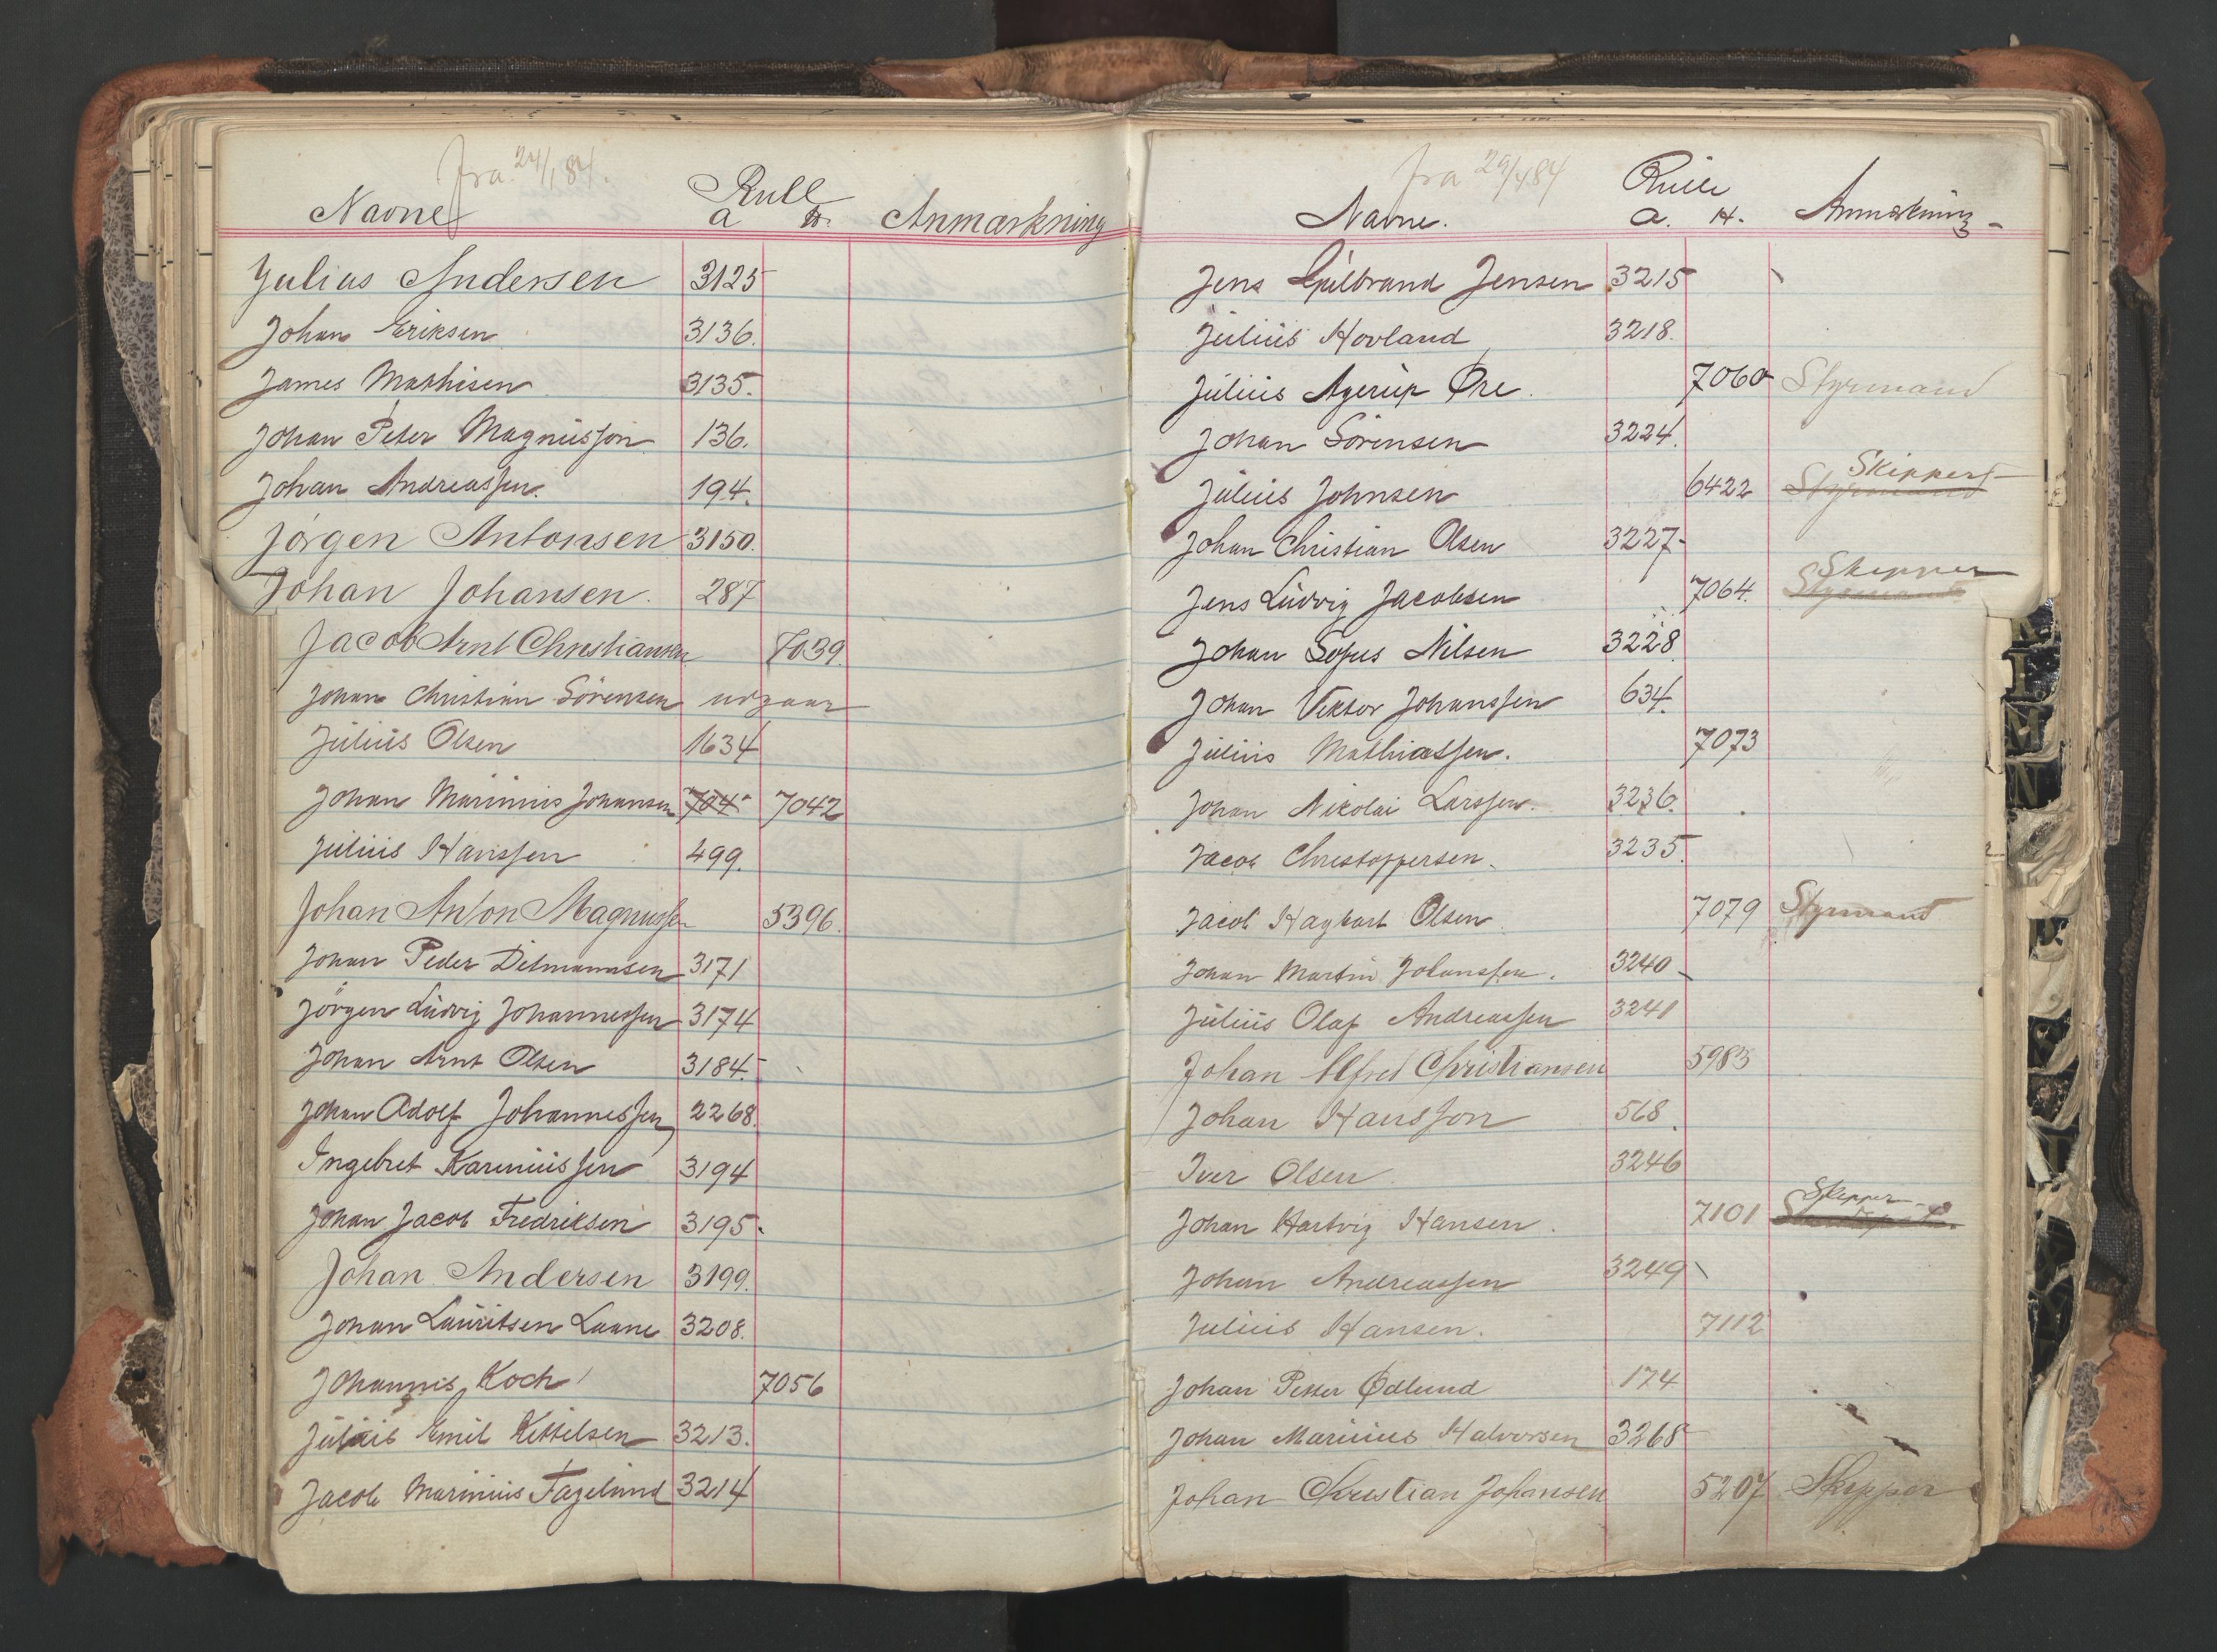 fra 24/1 84.
Navne Rull Anmærkning
a H.
Julius Andersen 3125
Johan Eriksen 3136.
James Mathisen 3135.
Johan Peter Magnusson 136.
Johan Andreassen. 194.
Jörgen Antonsen 3150.
Johan Johansen. 287
Jacob Arnt Christiansen 7039.
Johan Christian Sörensen udgaar
Julius Olsen 1634
Johan Marinius Johansen 704 7042
Julius Hanssen 499.
Johan Anton Magnussen 5396.
Johan Peder Ditmannsen 3171
Jörgen Ludvig Johannessen 3174
Johan Arnt Olsen 3184.
Johan Adolf Johannessen 2268.
Ingebret Kareniussen 3194
Johan Jacob Fredriksen 3195.
Johan Andersen 3199.
Johan Lauritsen Laane 3208.
Johannis Koch 7056
Julius Emil Kittelsen 3213.
Jacob Marinius Fagelund 3214
fra 29/4 84
Navne. Rulle Anmærkning
a. H.
Jens Gulbrand Jensen 3215
Julius Hovland 3218.
Julius Agerup Øre. 7060 Styrmand
Johan Sörensen 3224.
Julius Johnsen 6422 Styrmand Skippers
Johan Christian Olsen 3227
Jens Ludvig Jacobsen 7064. Styrmand Skipper
Johan Sofus Nilsen 3228
Johan Viktor Johanssen 634.
Julius Mathiassen. 7073
Johan Nikolai Larssen. 3236.
Jacob Christoffersen. 3235.
Jacob Hagbart Olsen. 7079 Styrmand
Johan Martin Johanssen. 3240
Julius Olaf Andreassen 3241
Johan Alfred Christiansen 5983
Johan Hansson 568.
Iver Olsen 3246
Johan Hartvig Hansen. 7101 Skipper
Johan Andreassen 3249
Julius Hansen. 7112
Johan Petter Ødlund 174
Johan Marinius Halvorsen 3268
Johan Christian Johansen 5207 Skipper